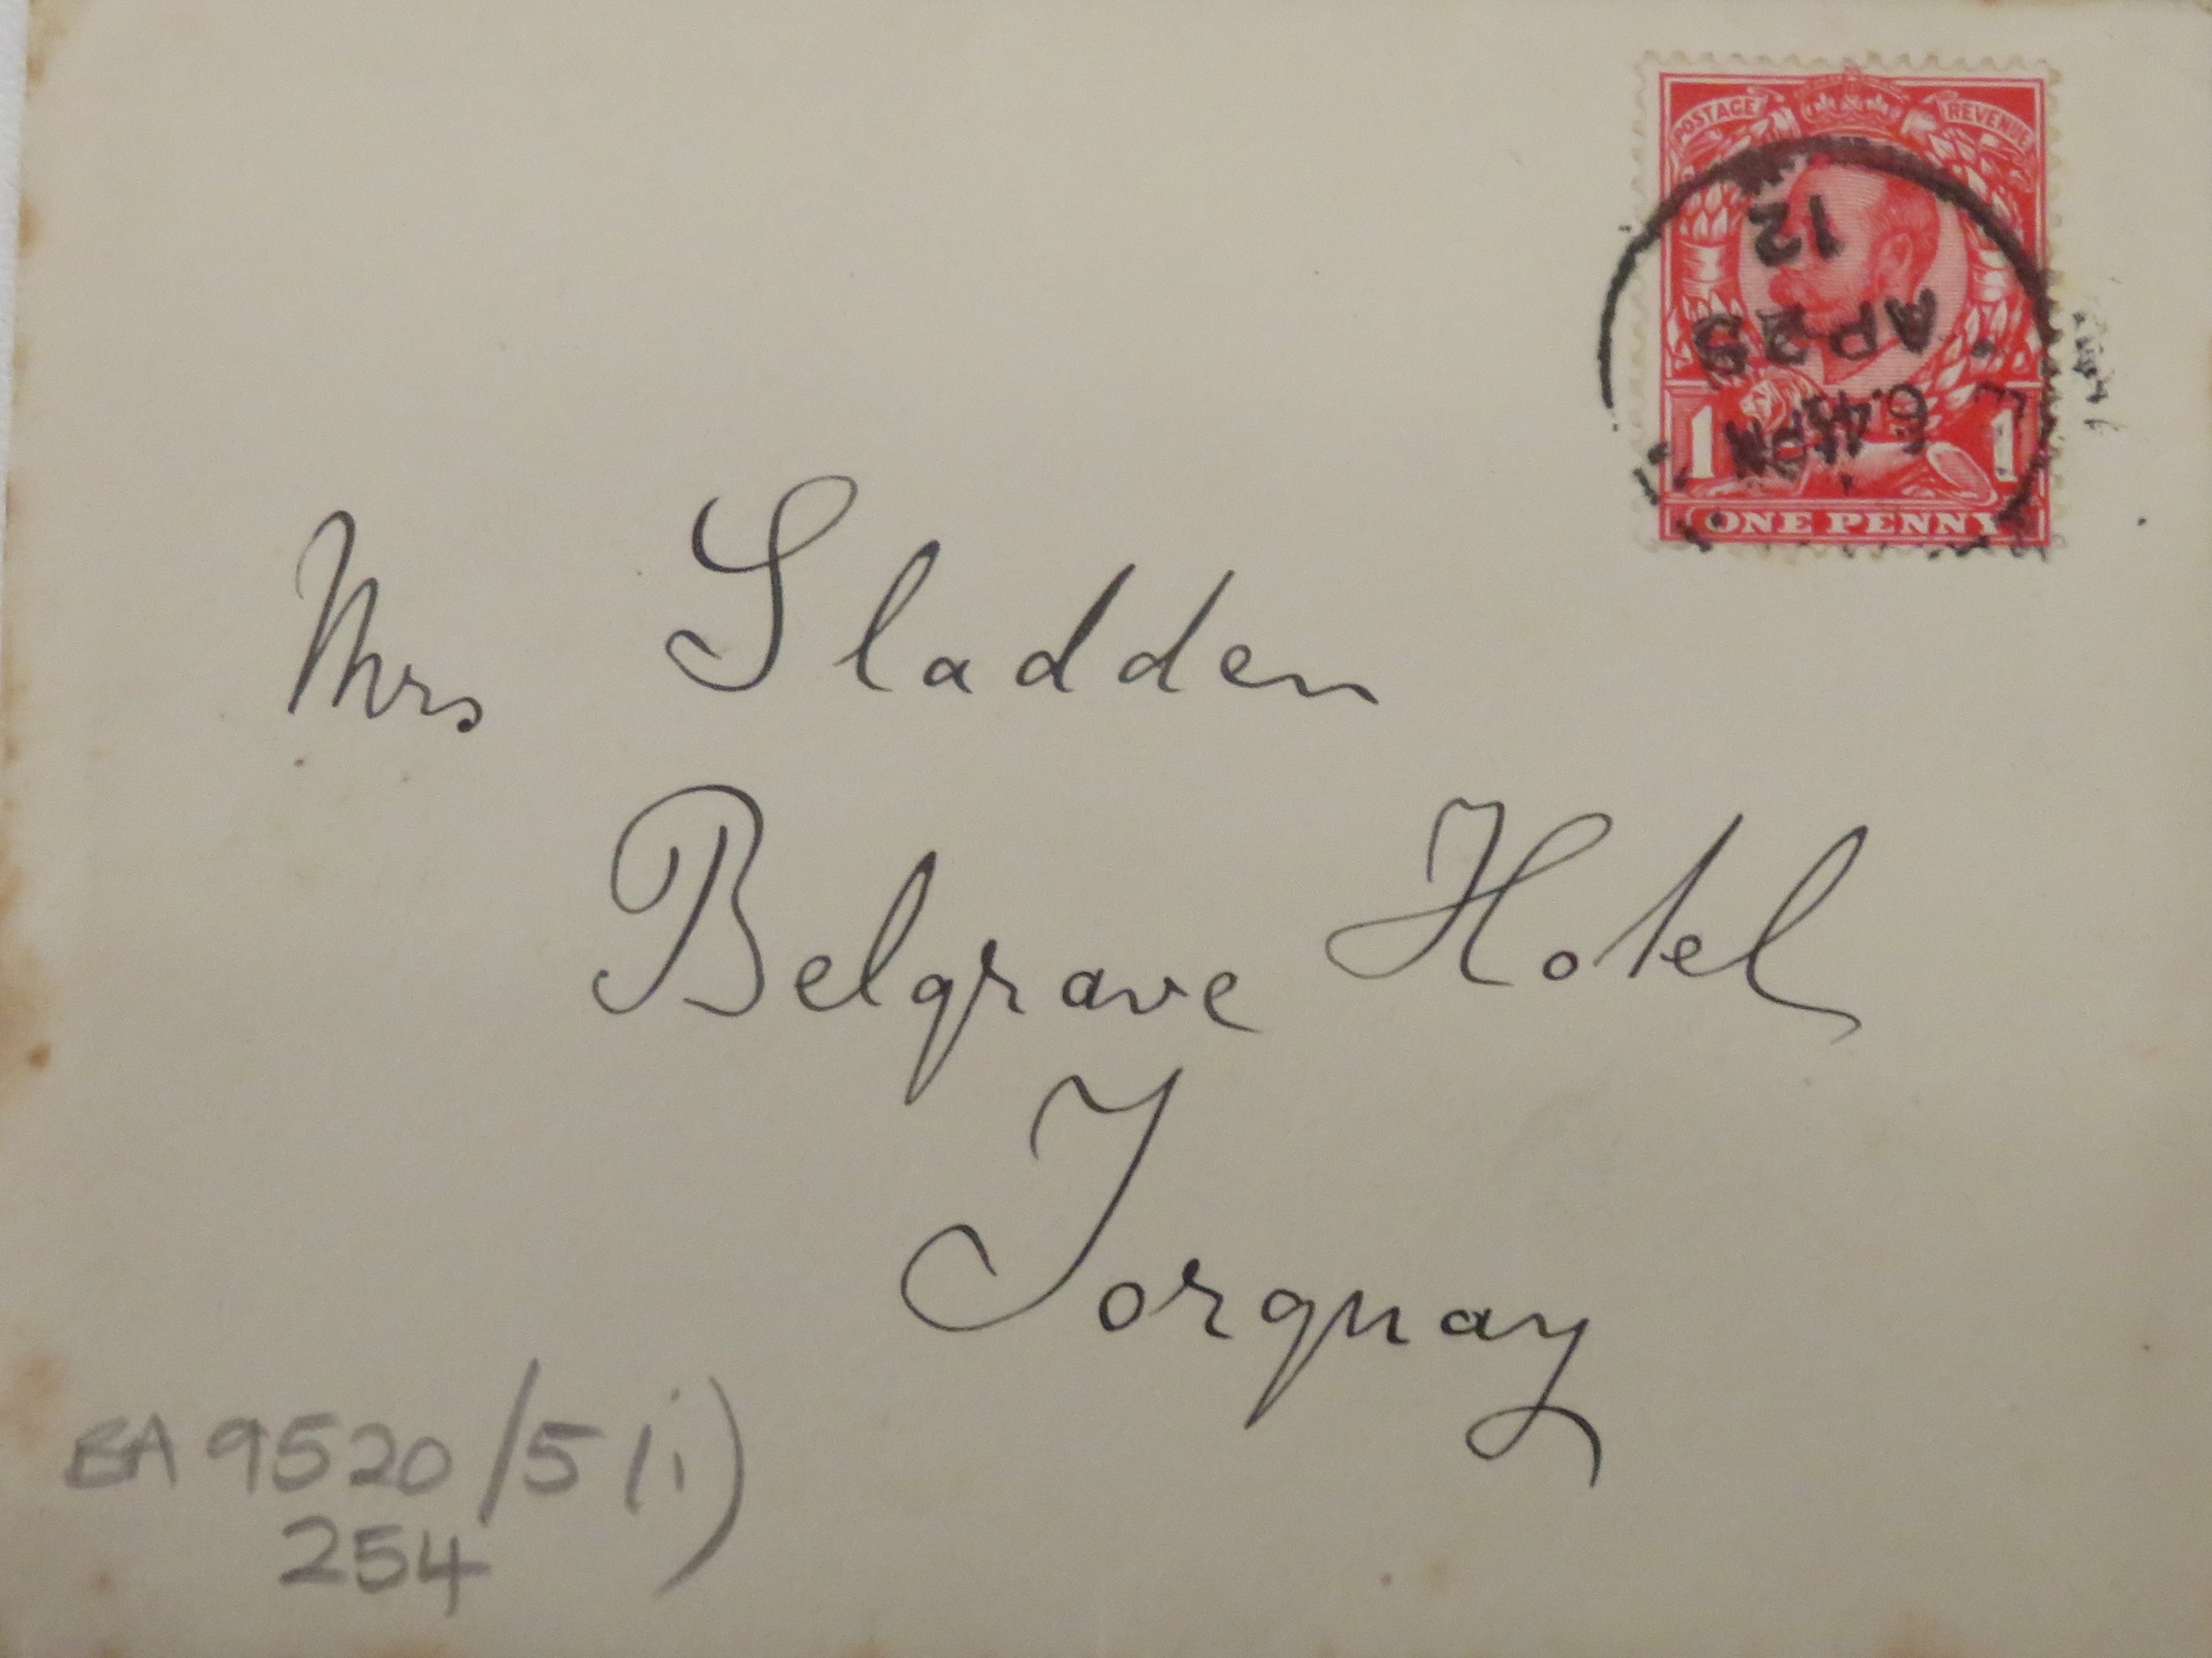 POSTAGE REVENUE
12
AP 25
6.45PM
1 1
ONE PENNY
Mrs Sladden
Belgrave Hotel
Torquay
BA 9520/5 (i)
254